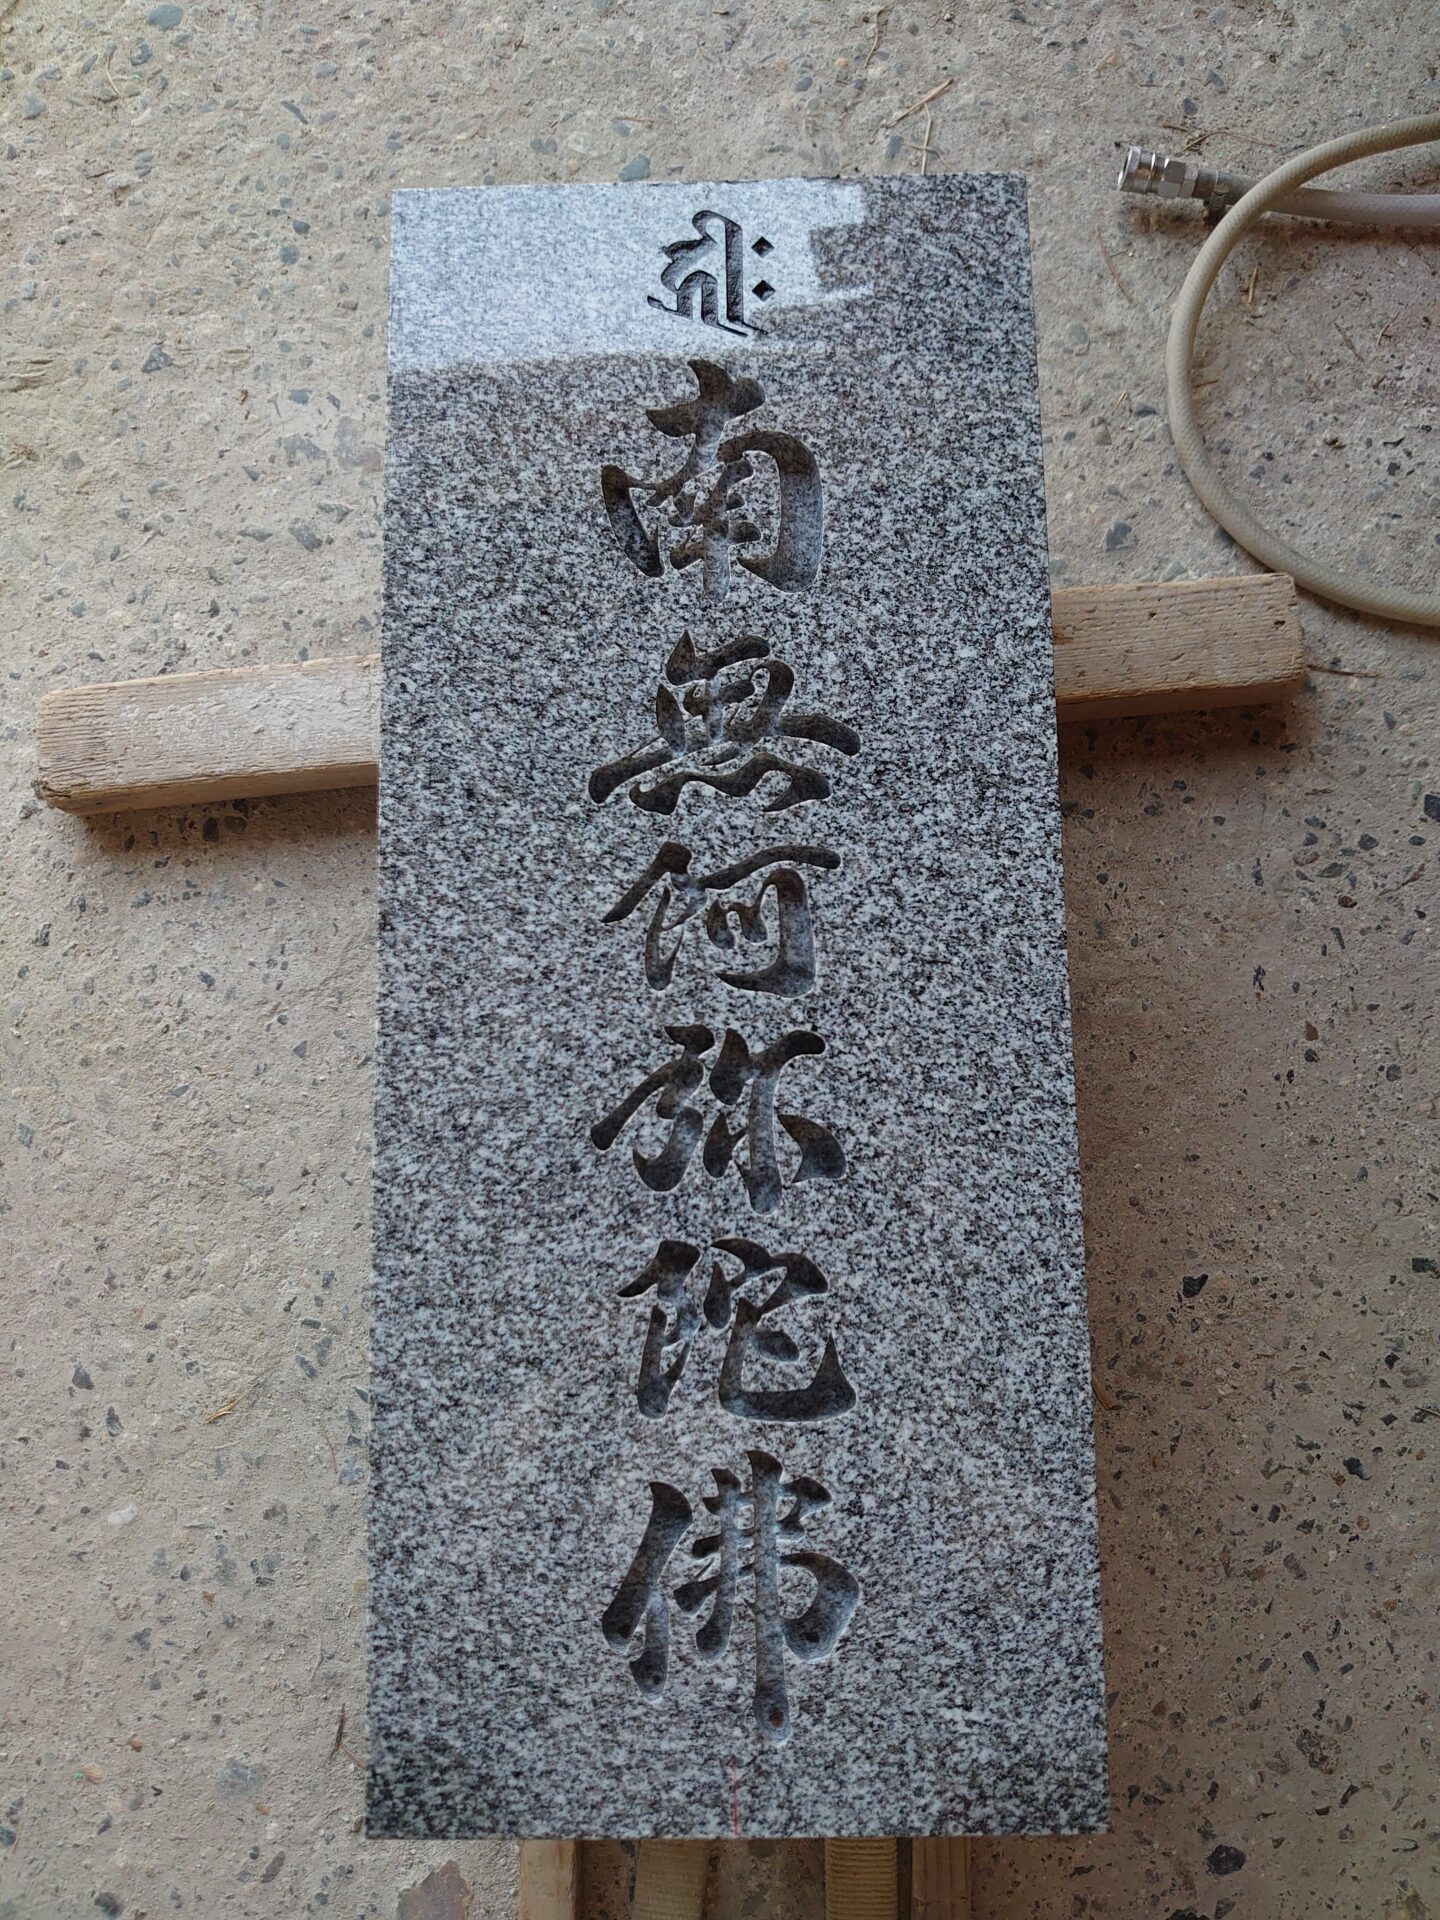 𑖮𑖿𑖨𑖱𑖾
南無阿弥陀佛